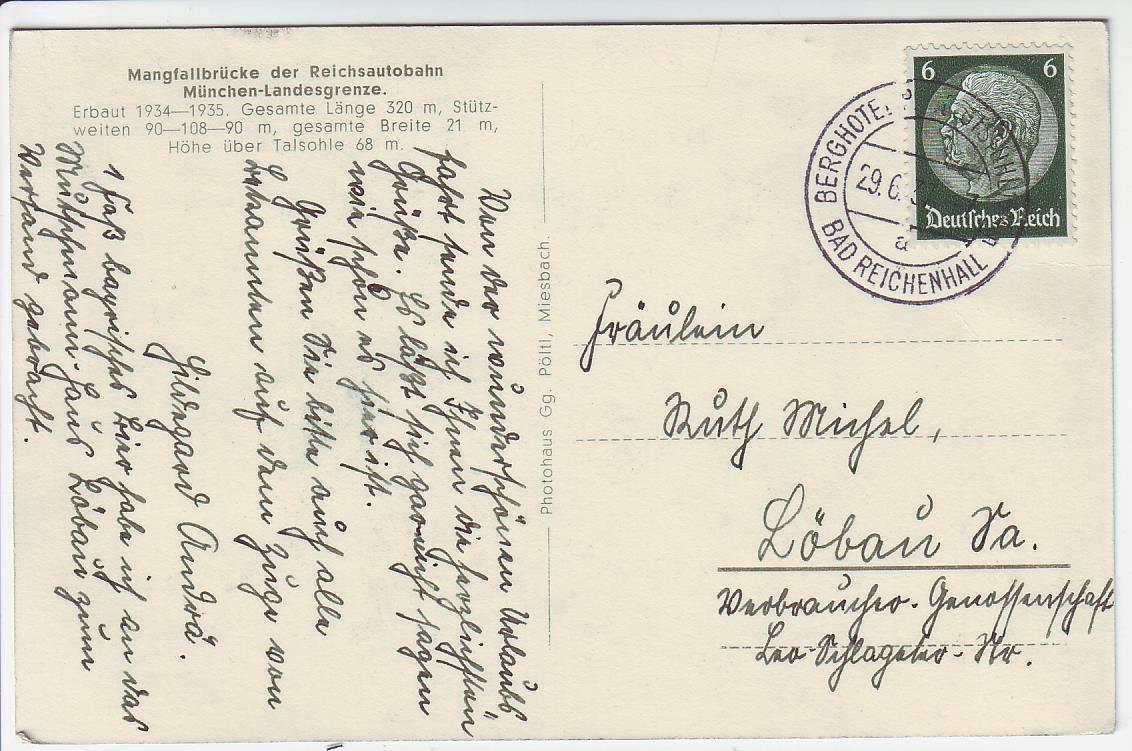 Mangfallbrücke der Reichsautobahn
München-Landesgrenze.
Erbaut 1934—1935. Gesamte Länge 320 m, Stütz-
weiten 90—108—90 m, gesamte Breite 21 m,
Höhe über Talsohle 68 m.
Von der wunderschönen Urlaubs
fahrt sende ich Ihnen die herzlichsten
Grüße. Es läßt sich garnicht sagen
wie schön es hier ist.
Grüßen Sie bitte auch alle
Bekannten auf dem Zuge von
Hildegard Andrä.
1 Faß bayrisches Bier habe ich an das
Mutschmann-Haus Löbau zum
Versand gebracht.
Photohaus Gg. Pöltl, Miesbach.
6 6
Deutsches Reich
BERGHOTEL
29.6.
a
BAD REICHENHALL
Fräulein
Ruth Michel,
Löbau Sa.
Verbraucher-Genossenschaft
Leo Schlageter-Str.